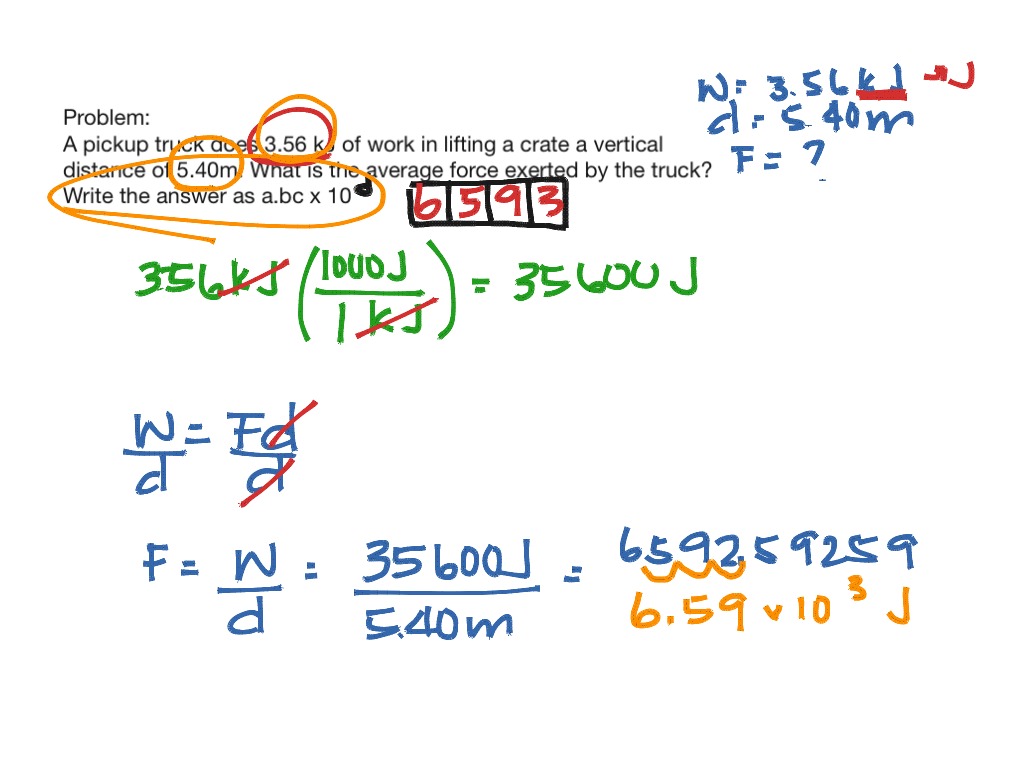 Problem:
A pickup truck does 3.56 kJ of work in lifting a crate a vertical
distance of 5.40m. What is the average force exerted by the truck?
Write the answer as a.bc x 10 d
6 5 9 3
W = 3.56 kJ → J
d = 5.40m
F = ?
356kJ (1000J / 1kJ) = 35600J
W/d = Fd/d
F = W/d = 35600J / 5.40m = 6592.59259
6.59 x 10^3 J